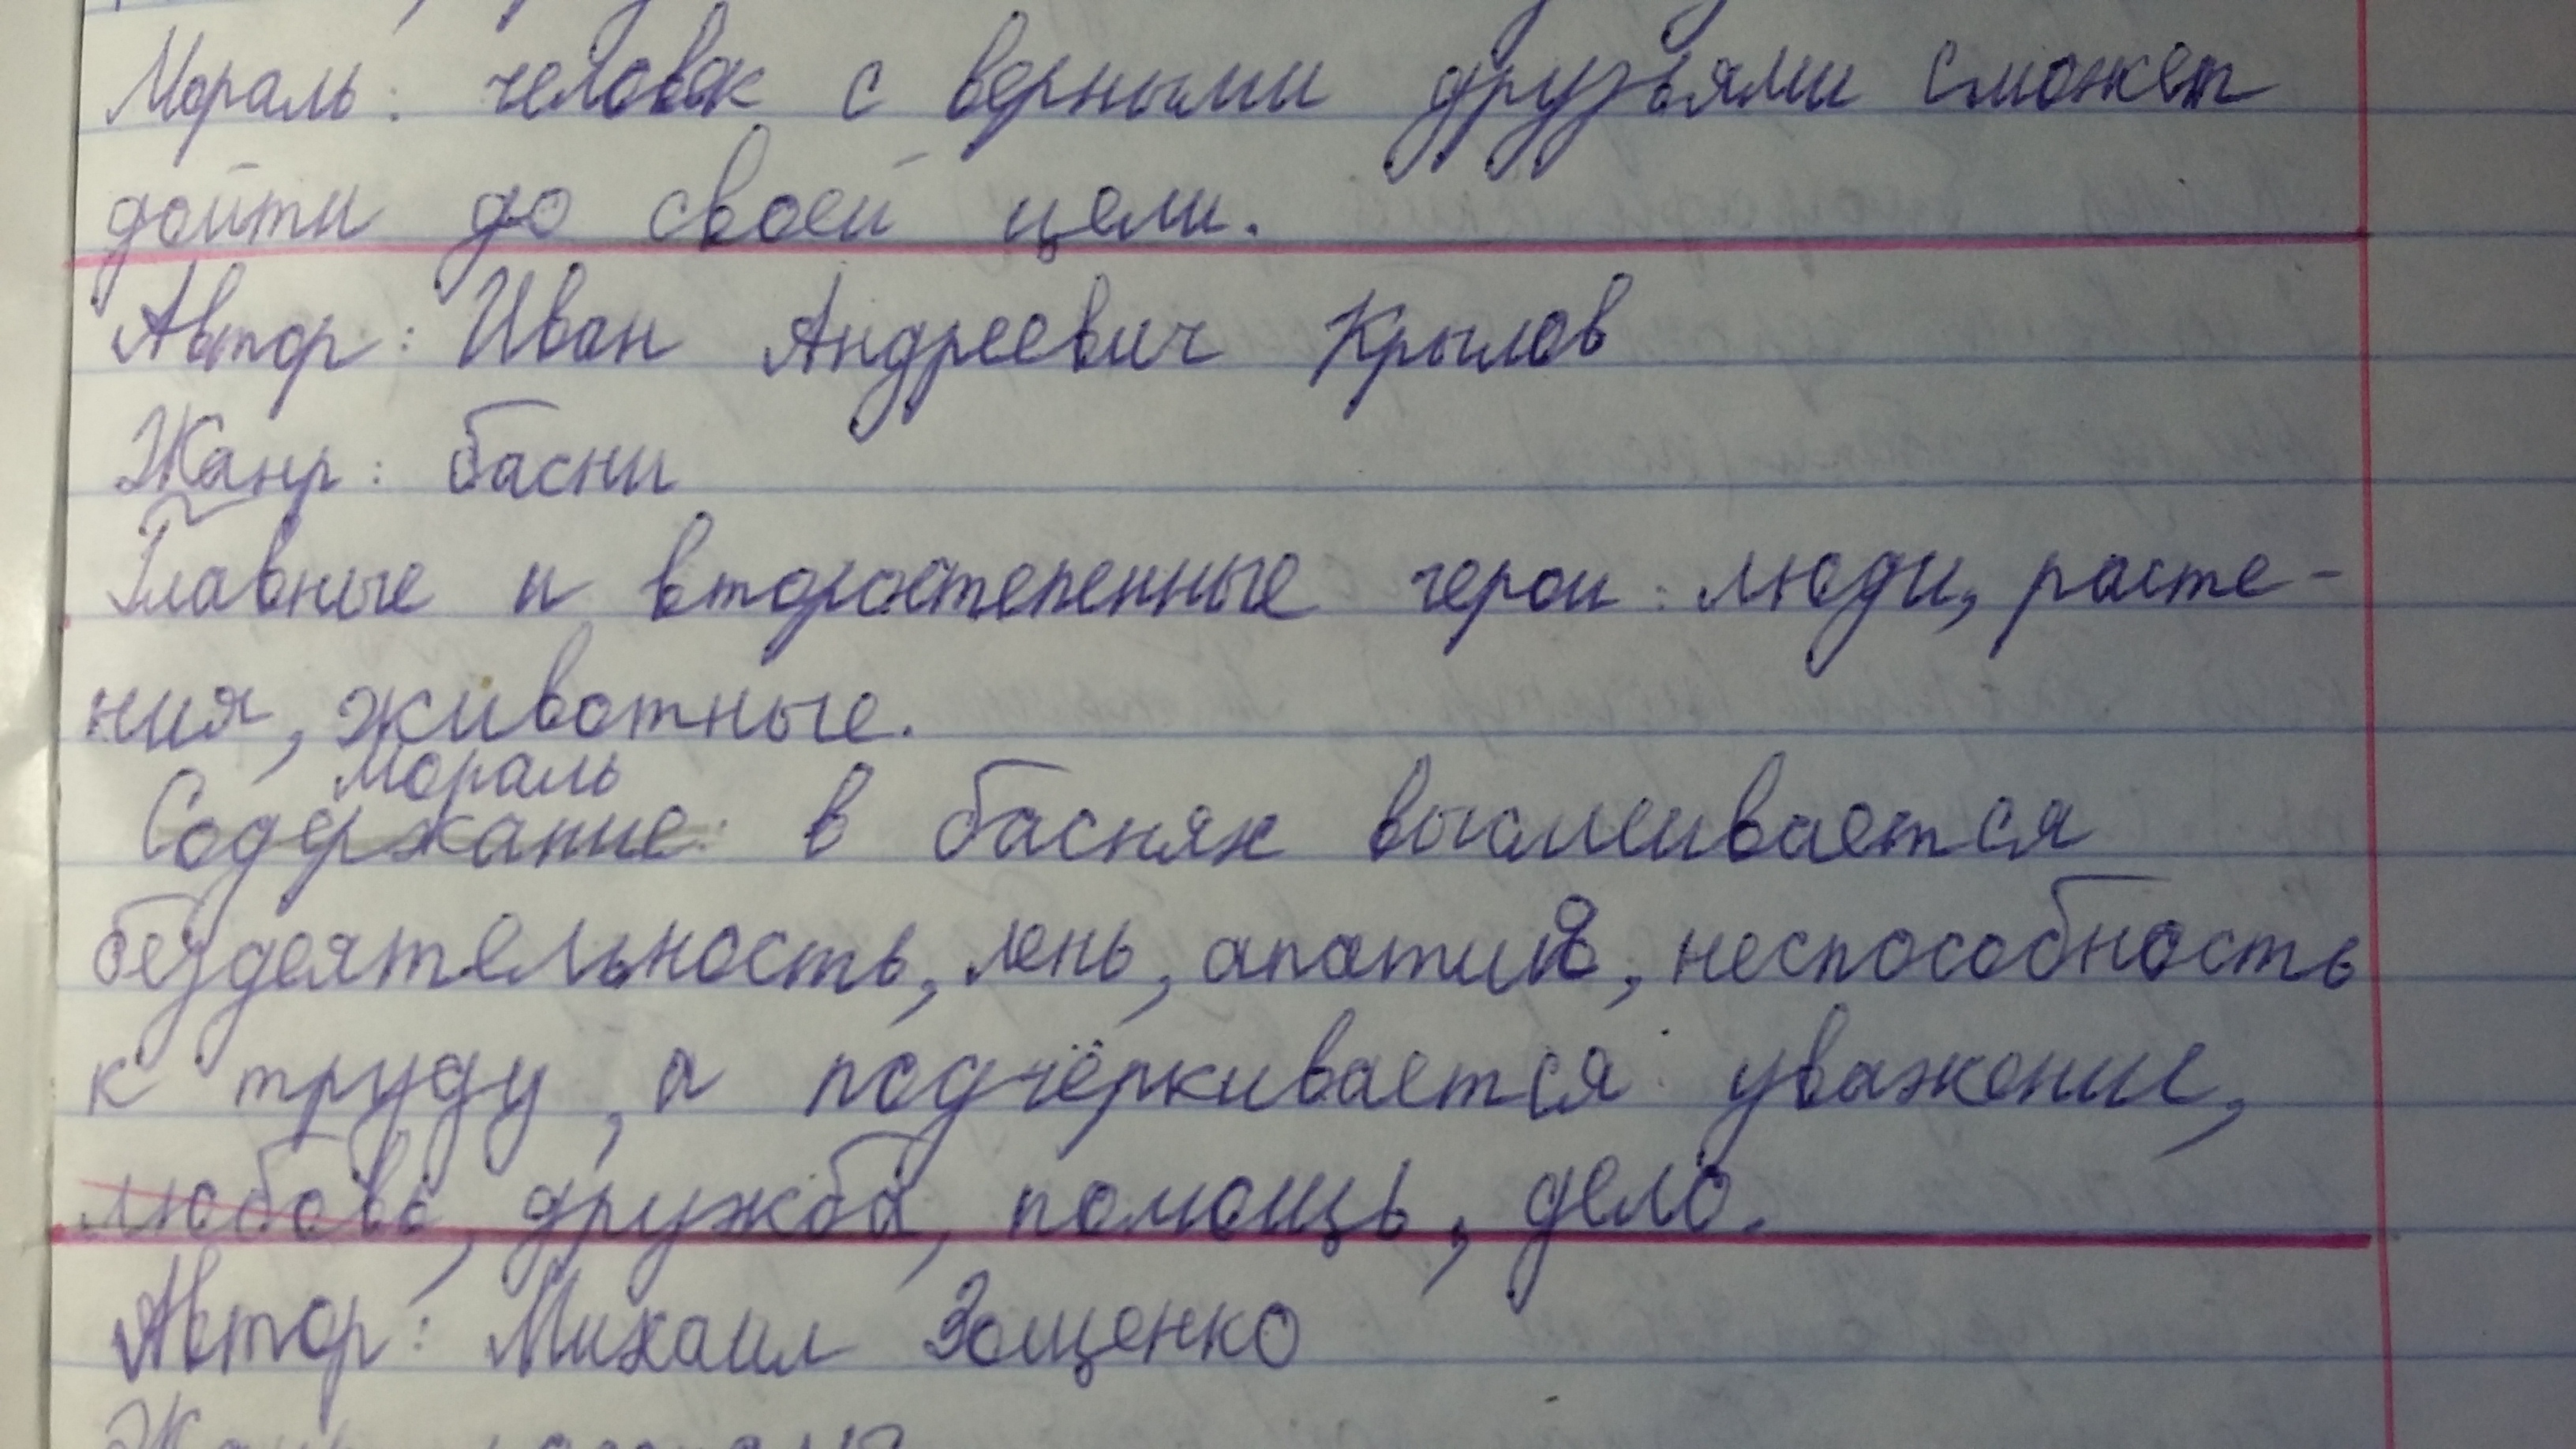 Мораль: человек с верными друзьями сможет
дойти до своей цели.
Автор: Иван Андреевич Крылов
Жанр: басни
Главные и второстепенные герои: люди, расте-
ния, животные.
Мораль
Содержание: в баснях высмеивается
бездеятельность, лень, апатия, неспособность
к труду, а подчёркивается уважение,
любовь, дружба, помощь, дело.
Автор: Михаил Зощенко